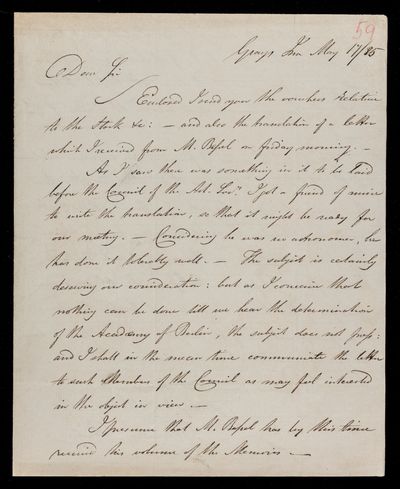 59
Grays Inn May 17/25
Dear Sir
Enclosed I send you the vouchers relative
to the Stock &c: — and also the translation of a letter
which I received from M. Bessel on friday morning. —
As I saw there was something in it to be laid
before the Council of the Ast. Soc.y I got a friend of mine
to write the translation, so that it might be ready for
our meeting. — Considering he was no astronomer, he
has done it tolerably well. — The subject is certainly
deserving our consideration: but as I conceive that
nothing can be done till we hear the determination
of the Academy of Berlin, the subject does not press:
and I shall in the mean time communicate the letter
to such Members of the Council as may feel interested
in the object in view. —
I presume that M. Bessel has by this time
received his volume of the Memoirs —